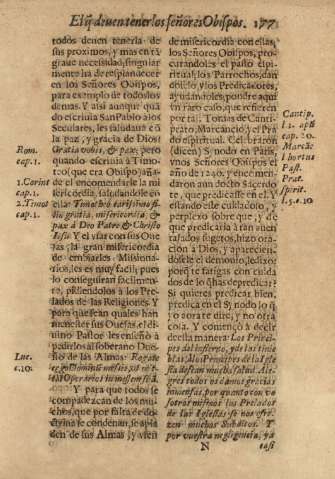 El q̃ deuen tener los señores Obispos. 177
todos deuen tenerla de
sus proximos, y mas en tã
graue necessidad, singular
mente ha de resplandecer
en los Señores Obispos,
para exemplo de todos los
demas. Y assi aunque quã
do escriuia San Pablo a los
Seculares, les saludaua cõ
la paz, y gracia de Dios:
Gratia vobis, & pax; pero
quando escriuia à Timo-
teo (que era Obispo) aña-
de el encomendarle la mi
sericordia, saludandole en
esta: Timotheo
filio gratia, misericordia, &
pax à Deo Patre, & Christo
Iesu. Y el vsar con sus Oue
jas, la gran misericordia
de embiarles Missiona-
rios, les es muy facil; pues
lo conseguiran facilmen-
te, pidiendolos à los Pre-
lados de las Religiones. Y
para que sean quales han
menester sus Ouejas, el di-
uino Pastor les enseñò à
pedirlos al soberano Due-
ño de las Almas: Rogate
ergo Dominũ messis, vt mi-
tat Operarios in messem suã.
Y para que todos se
compadezcan de los mu-
chos, que por falta de do-
ctrina se condenan, se apia
den de sus Almas, y vsen
Rom.
cap. 1.
1. Corint
cap. 1.
2. Timot
cap. 1.
Luc.
c. 10.
de misericordia con ellas,
los Señores Obispos, pro-
curandoles el pasto espi-
ritual; los Parrochos, dan
doselo, y los Predicadores,
ayudandoles, pondrè aqui
vn raro caso, que refieren
por tal: Tomàs de Cantim
prato, Marcancio, y el Pra
do espiritual. Celebraron
(dicen) Synodo en Paris,
vnos Señores Obispos el
año de 1240. y encomen-
daron a un docto Sacerdo-
te, que predicasse en èl. Y
estando este cuidadoso, y
perplexo sobre que, y de
que predicaria à tan auen-
tajados sugetos, hizo ora-
cion à Dios, y aparecien-
dosele el demonio, le dixo:
porq̃ te fatigas con cuida
dos de lo q̃ has de predicar?
Si quieres predicar bien,
predica en el Synodo lo q̃
yo aora te dire, y no otra
cosa. Y començò à decir
desta manera: Los Princi-
pes del infierno, y de las tinie
blas, à los Principes de la Igle
sia desean mucha salud. Ale-
gres todos os damos gracias
inmensas, por quanto con vo
sotros mismos los Prelados
de las Iglesias se nos ofre-
zen muchos Subditos. Y
por vuestra negligencia, ya
Cantip.
l. 2. apũ
cap. 20.
Marcãc
l. hortus
Past.
Prat.
spirit.
N
casi